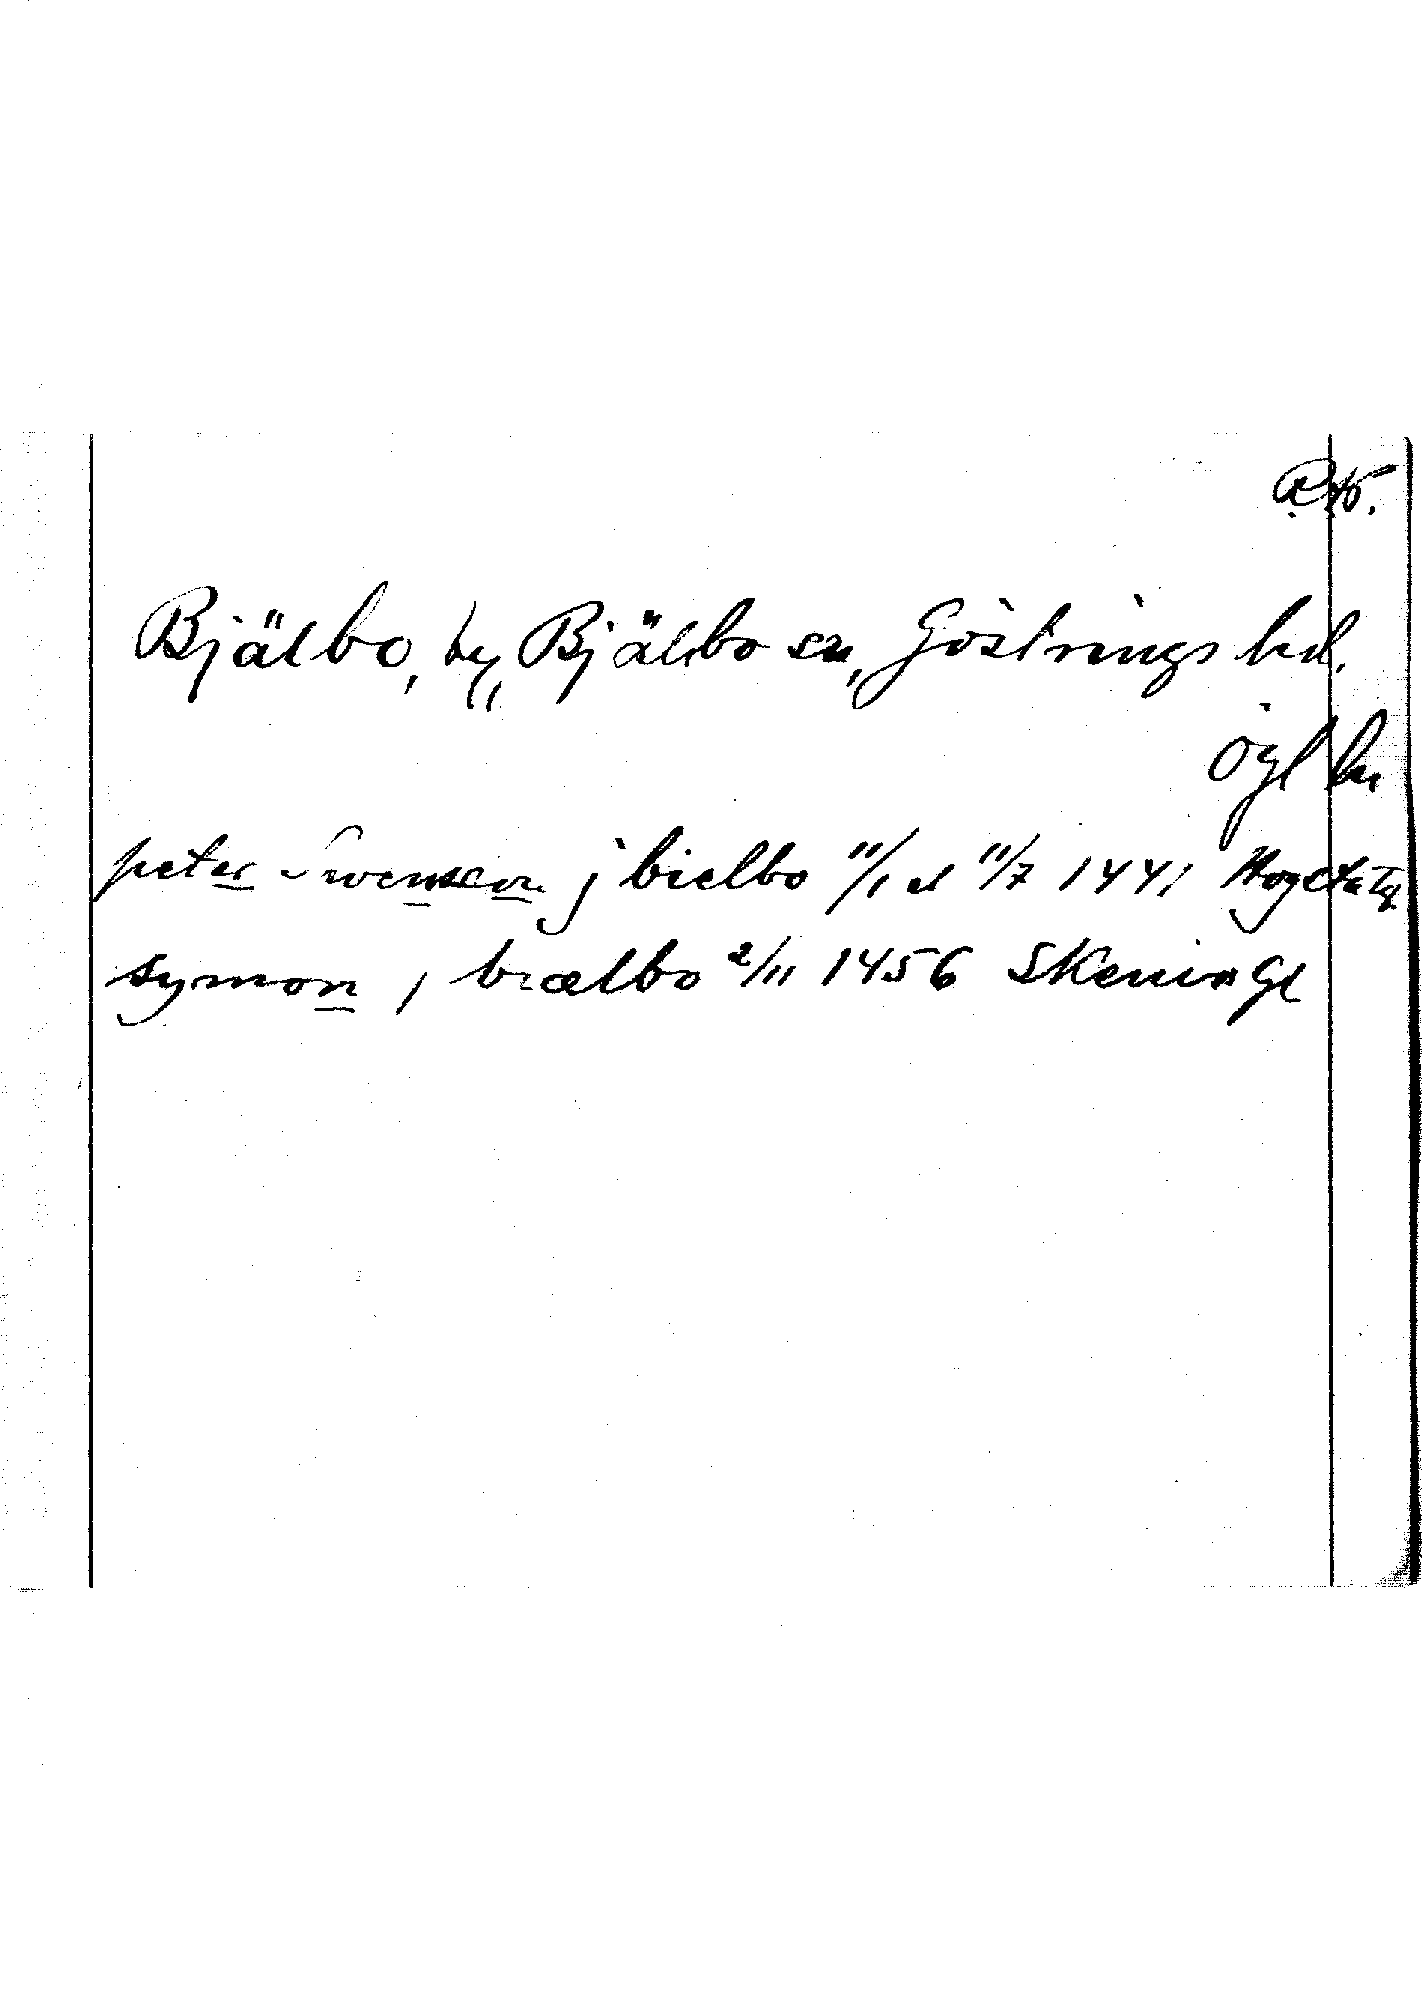 Bjälbo, by, Bjälbo sn, Göstrings hd.
Ögl ln
peter Swenson j bielbo 11/1 el 11/7 1441
symon j biælbo 2/11 1456 Skening Gl